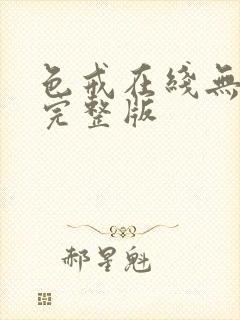 色戒在綫無
完整版
郝星魁